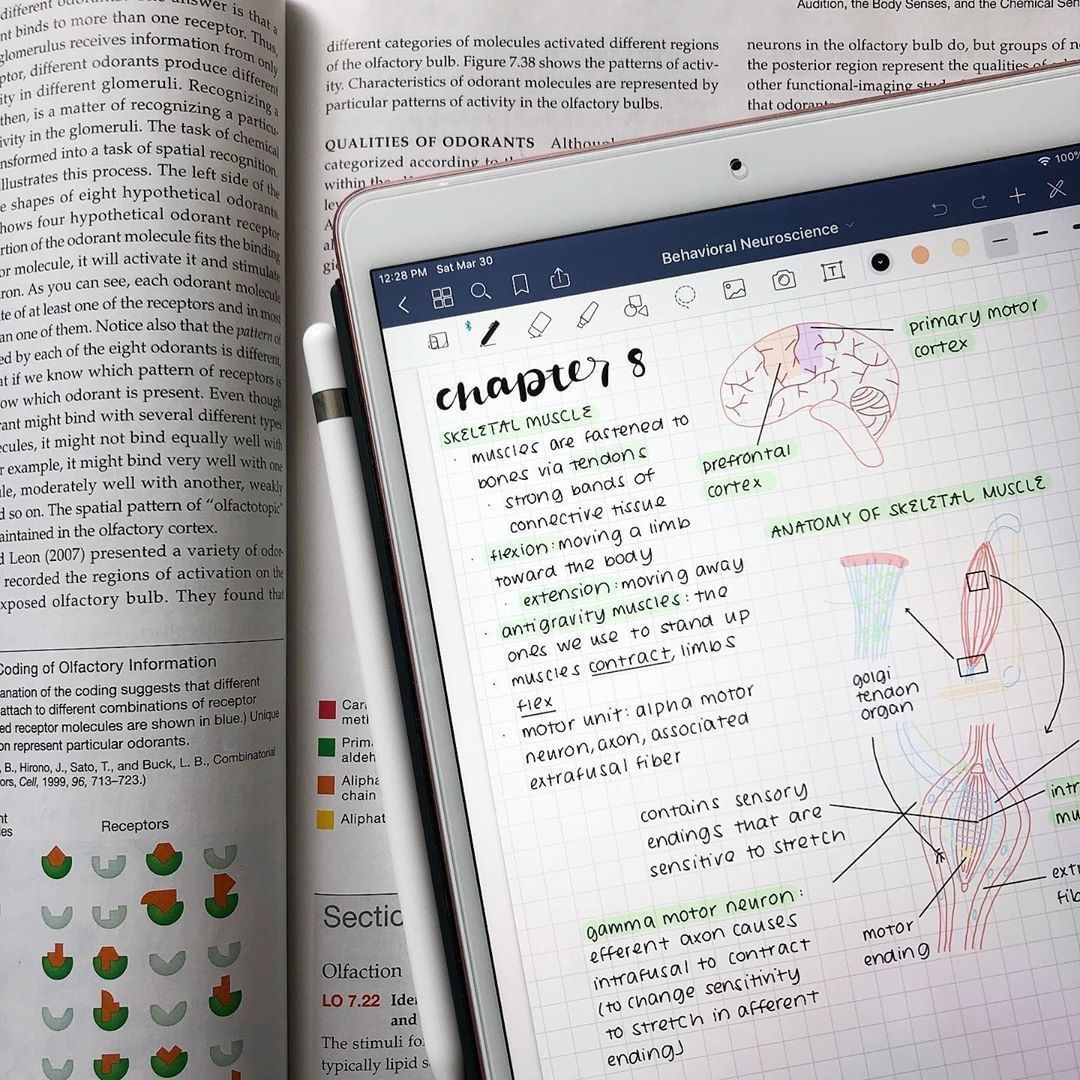 different odorants? The answer is that a
nt binds to more than one receptor. Thus,
glomerulus receives information from only
ptor, different odorants produce different
ity in different glomeruli. Recognizing a
then, is a matter of recognizing a particu-
ivity in the glomeruli. The task of chemical
nsformed into a task of spatial recognition.
llustrates this process. The left side of the
e shapes of eight hypothetical odorants.
hows four hypothetical odorant receptor
rtion of the odorant molecule fits the binding
or molecule, it will activate it and stimulate
ron. As you can see, each odorant molecule
te of at least one of the receptors and in most
an one of them. Notice also that the pattern of
ed by each of the eight odorants is different,
at if we know which pattern of receptors is
ow which odorant is present. Even though
rant might bind with several different types
ecules, it might not bind equally well with
r example, it might bind very well with one
le, moderately well with another, weakly
d so on. The spatial pattern of “olfactotopic”
aintained in the olfactory cortex.
d Leon (2007) presented a variety of odor-
recorded the regions of activation on the
xposed olfactory bulb. They found that
Coding of Olfactory Information
anation of the coding suggests that different
attach to different combinations of receptor
ed receptor molecules are shown in blue.) Unique
on represent particular odorants.
, B., Hirono, J., Sato, T., and Buck, L. B., Combinatorial
ors, Cell, 1999, 96, 713–723.)
nt
es
Receptors
Audition, the Body Senses, and the Chemical Sen
different categories of molecules activated different regions
of the olfactory bulb. Figure 7.38 shows the patterns of activ-
ity. Characteristics of odorant molecules are represented by
particular patterns of activity in the olfactory bulbs.
QUALITIES OF ODORANTS Althou
categorized according to
within the
neurons in the olfactory bulb do, but groups of n
the posterior region represent the qualities of
other functional-imaging
that
Car
meth
Prim
aldeh
Alipha
chain
Aliphat
Sectio
Olfaction
LO 7.22 Ide
and
The stimuli fo
typically lipid s
12:28 PM Sat Mar 30
100%
Behavioral Neuroscience
T
chapter 8
SKELETAL MUSCLE
· muscles are fastened to
bones via tendons
· strong bands of
connective tissue
· flexion: moving a limb
toward the body
· extension: moving away
· antigravity muscles: the
ones we use to stand up
· muscles contract, limbs
flex
· motor unit: alpha motor
neuron, axon, associated
extrafusal fiber
primary motor
cortex
prefrontal
cortex
ANATOMY OF SKELETAL MUSCLE
golgi
tendon
organ
contains sensory
endings that are
sensitive to stretch
intr
mu
extr
fib
motor
ending
gamma motor neuron:
efferent axon causes
intrafusal to contract
(to change sensitivity
to stretch in afferent
ending)